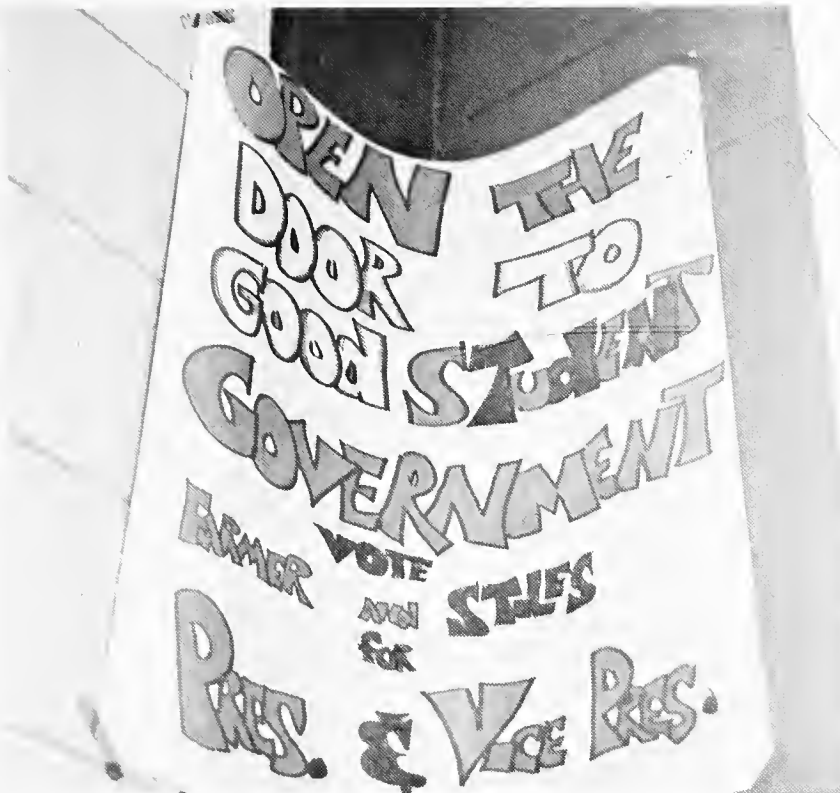 OPEN THE
DOOR TO
GOOd STUdENT
GOVERNMENT
FARMER VOTE STILES
AND
FOR
PRES. & VICE PRES.